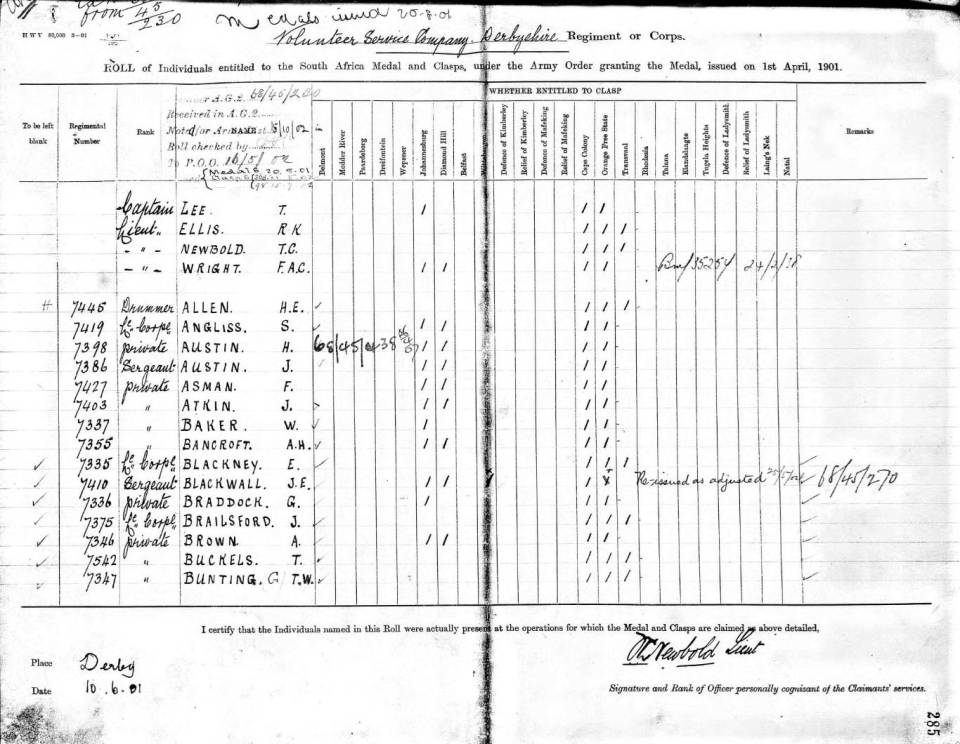 from 45/230
Medals issued 20-8-01
HWV 80,000 3-01
Volunteer Service Company. Derbyshire Regiment or Corps.
ROLL of Individuals entitled to the South Africa Medal and Clasps, under the Army Order granting the Medal, issued on 1st April, 1901.
68/45/200
WHETHER ENTITLED TO CLASP
Received in A.G.2
Noted for 5/10/02
Roll checked by
To P.O.O. 16/5/02
Medals 20.8.01
To be left blank Regimental Number Rank NAME Belmont Modder River Paardeberg Dreifontein Wepener Johannesburg Diamond Hill Belfast Wittebergen Defence of Kimberley Relief of Kimberley Defence of Mafeking Relief of Mafeking Cape Colony Orange Free State Transvaal Rhodesia Talana Elandslaagte Tugela Heights Defence of Ladysmith Relief of Ladysmith Laing's Nek Natal Remarks
Captain LEE. T. / / /
Lieut. ELLIS. R K / / /
- " - NEWBOLD. T.C. / / /
- " - WRIGHT. F.A.C. / / / / 35254 24/2/38
H 7445 Drummer ALLEN. H.E. ✓ / / /
7419 Lce Corpl ANGLISS. S. ✓ / / / /
7398 private AUSTIN. H. 68/45/ / / / /
7386 Sergeant AUSTIN. J. / / / /
7427 private ASMAN. F. / / / /
7403 " ATKIN. J. / / / /
7337 " BAKER. W. / / /
7355 " BANCROFT. A.H. ✓ / / / /
✓ 7335 Lce Corpl BLACKNEY. E. ✓ / / /
✓ 7410 Sergeant BLACKWALL. J.E. ✓ / / / x Re-issued as adjusted 68/45/270
✓ 7336 private BRADDOCK. G. ✓ / / / ✓
✓ 7375 Lce Corpl BRAILSFORD. J. ✓ / / / ✓
✓ 7346 private BROWN. A. ✓ / / / / ✓
✓ 7542 " BUCKELS. T. ✓ / / /
✓ 7347 " BUNTING. G/ T.W. ✓ / / / ✓
I certify that the Individuals named in this Roll were actually present at the operations for which the Medal and Clasps are claimed as above detailed,
Place Derby
TC Newbold Lieut
Date 10.6.01
Signature and Rank of Officer personally cognisant of the Claimants' services.
285